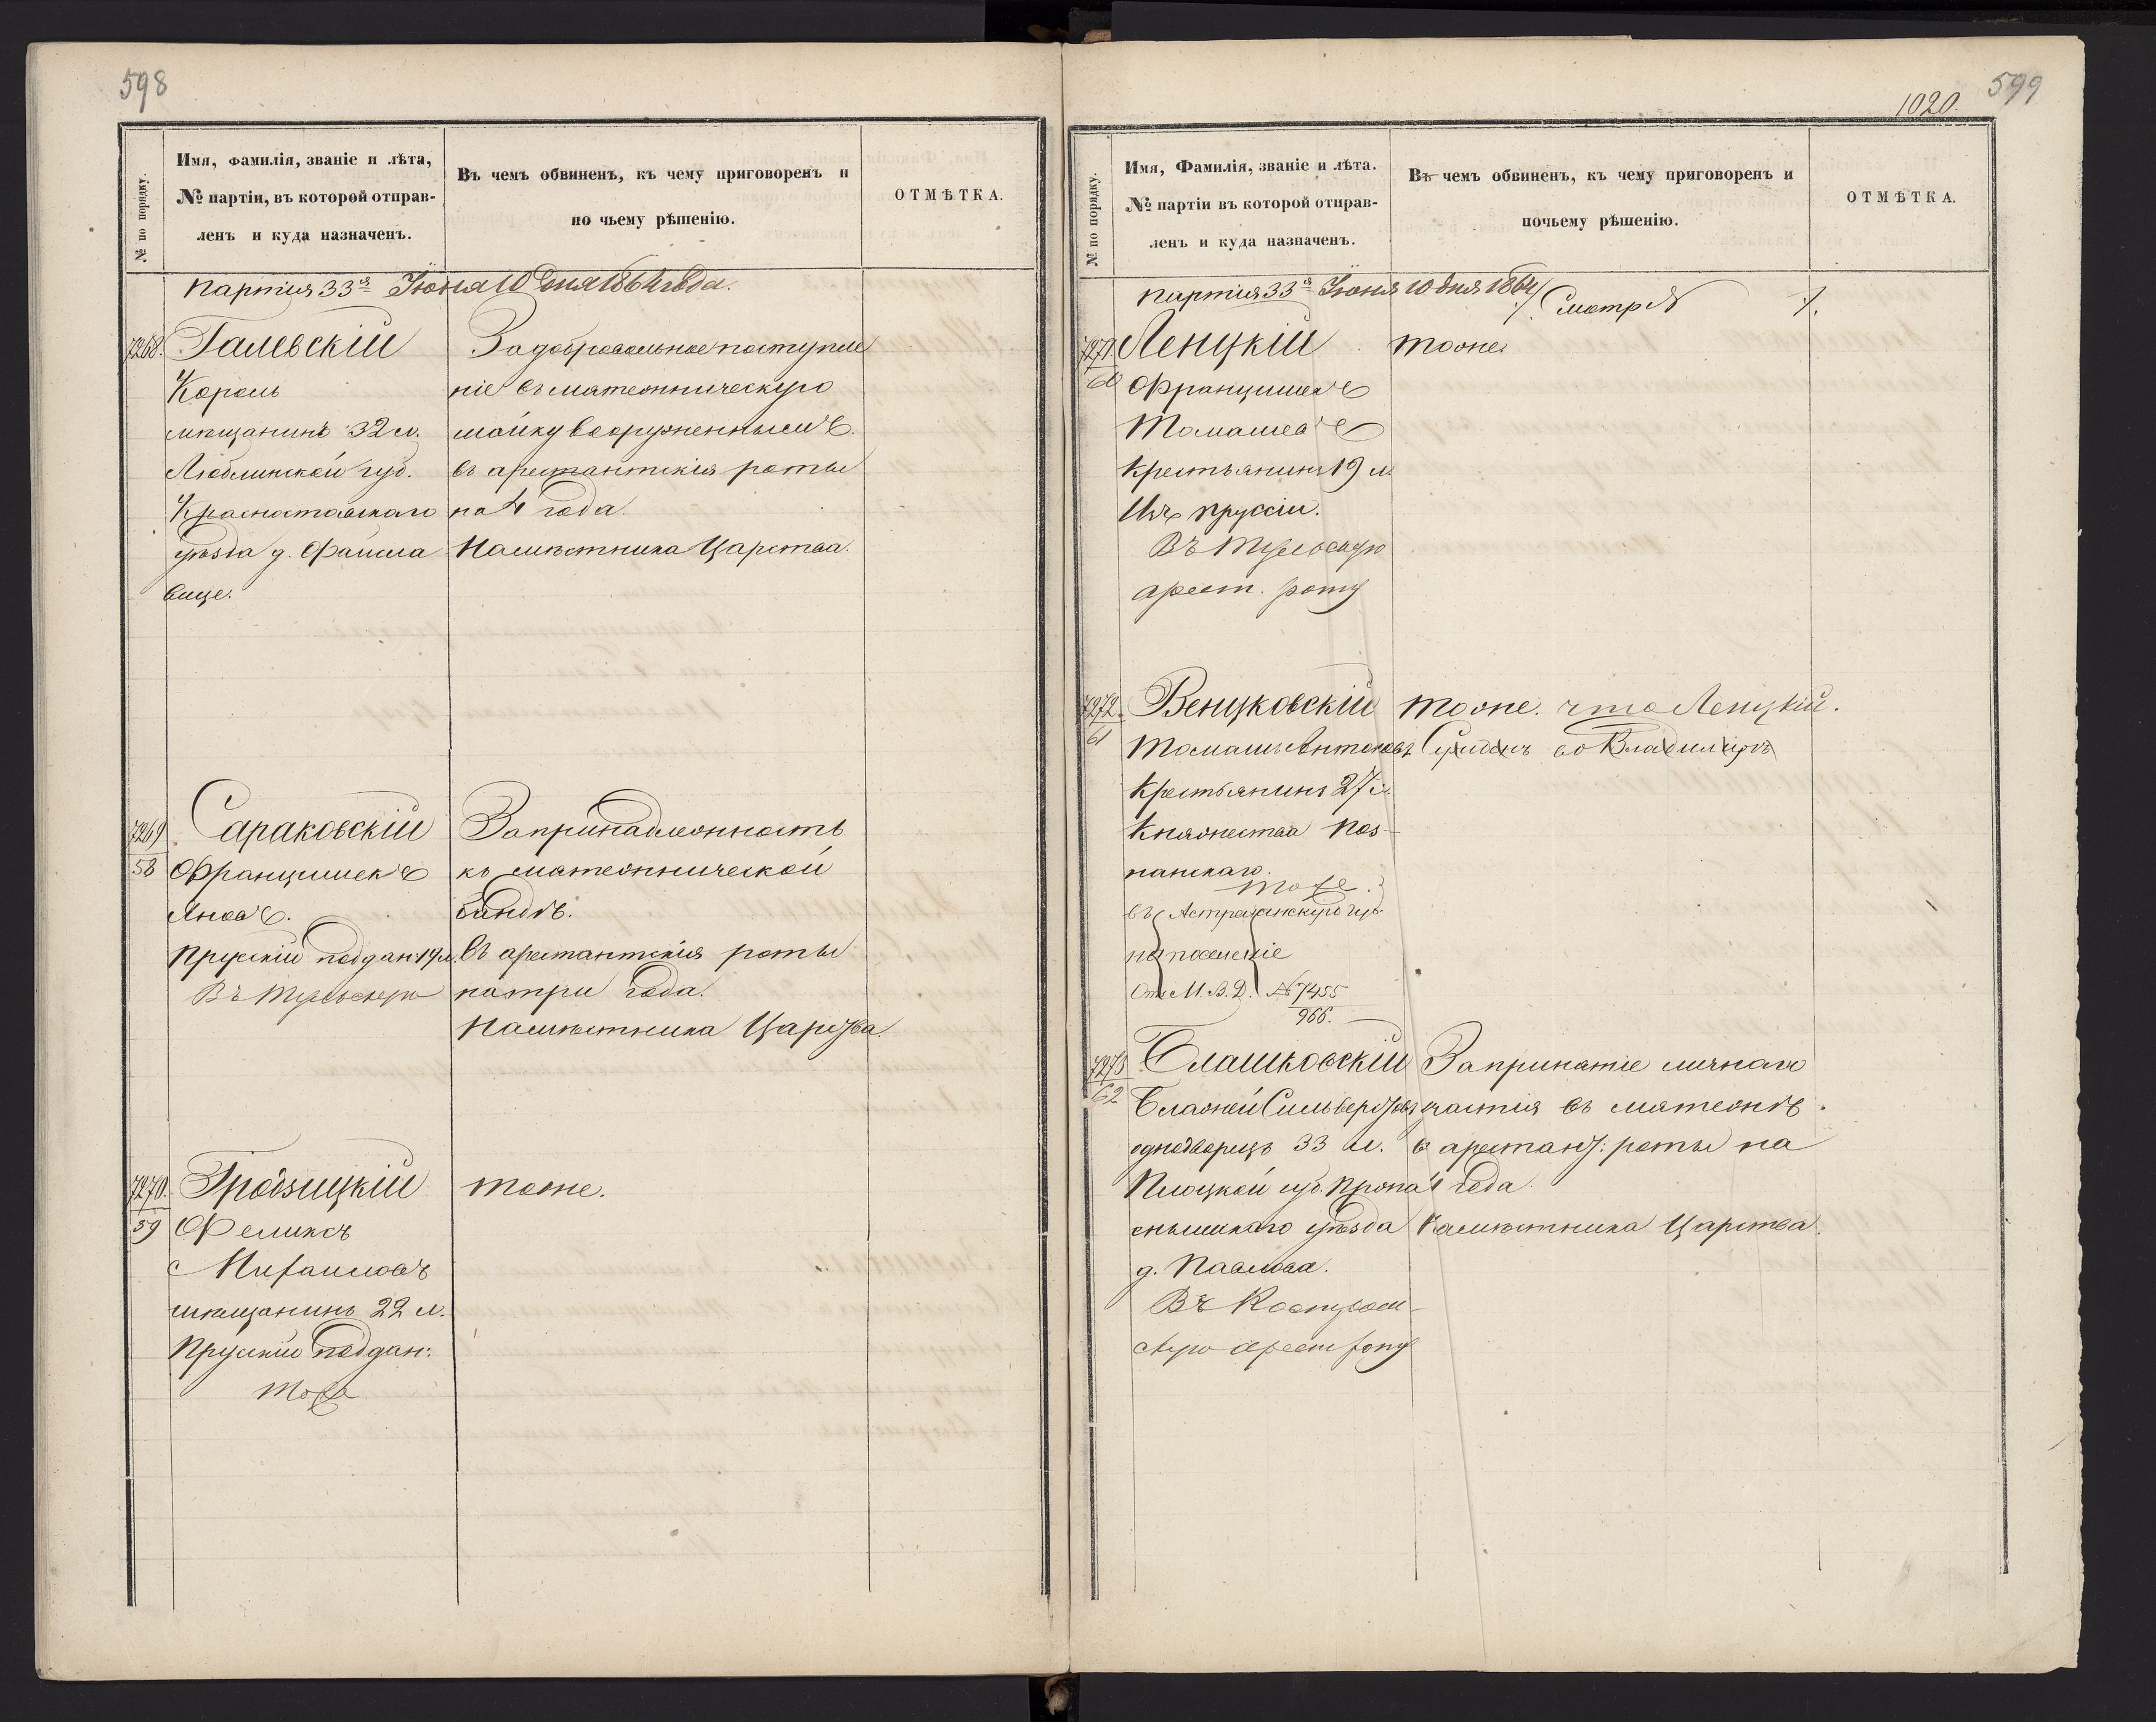 598
№ по порядку.
Имя, Фамилія, званіе и лѣта,
№ партіи, въ которой отправ-
ленъ и куда назначенъ.
Въ чемъ обвиненъ, къ чему приговоренъ и
по чьему рѣшенію.
ОТМѢТКА.
Партія 33я Іюня 10 дня 1864 года.
7268.
Галевскій
Кароль
мѣщанинъ 32 л.
Люблинской губ.
Красноставскаго
уѣзда д. Файсла
вице.
За добровольное поступле
ніе въ мятежническую
шайку вооруженнымъ.
въ арестантскія роты
на 4 года.
Намѣстника Царства.
7269
58
Сараковскій
Францишекъ
Яновъ.
Прусскій поддан: 19 л.
Въ Тульскую
За принадлежность
къ мятежнической
бандѣ.
въ арестантскія роты
на три года.
Намѣстника Царства.
7270.
59
Гродзицкій
Феликсъ
Михаиловъ
мѣщанинъ 22 л.
Прусскій поддан:
Тоже
тоже.
599
1020.
№ по порядку.
Имя, Фамилія, званіе и лѣта.
№ партіи въ которой отправ-
ленъ и куда назначенъ.
Въ чемъ обвиненъ, къ чему приговоренъ и
почьему рѣшенію.
ОТМѢТКА.
Партія 33я Іюня 10 дня 1864
7271.
60
Ленцкій
Францишекъ
Томашевъ
крестьянинъ 19 л.
Изъ Пруссіи.
Въ Тульскую
арест. роту
тоже.
7272.
61
Венцковскій
Томашъ Антоновъ
Крестьянинъ 27 л.
Княжества Поз-
нанскаго.
Тоже.
въ Астраханскую губ.
на поселеніе
Отн. М. В. Д. № 7455
966.
тоже. что Ленцкій.
во Владимирѣ
7273
62
Блашковскій
Блажей Сильверстовъ
однодворецъ 33 л.
Плоцкой губ. Прона
снышскаго уѣзда
д. Павлова.
Въ Костром-
скую арест роту
За принятіе личнаго
участія въ мятежѣ.
в арестант: роты на
1 года.
Намѣстника Царства.